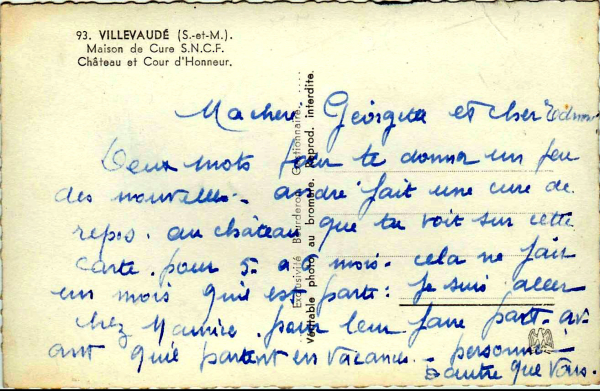 93. VILLEVAUDÉ (S.-et-M.).
Maison de Cure S.N.C.F.
Château et Cour d'Honneur.
Ma chere Georgette et cher Edmond
Deux mots pour te donner un peu
des nouvelles. andre fait une cure de
repos. au château que tu voit sur cette
carte. pour 5 a 6 mois. cela ne fait
un mois qu'il est parti: Je suis aller
chez Maurice. pour leur faire part. av-
ant qu'il partent en vacances. personne
d'autre que vous.
Exclusivité Bourderon, Gestionnaire.
Véritable photo au bromure. Reprod. interdite.